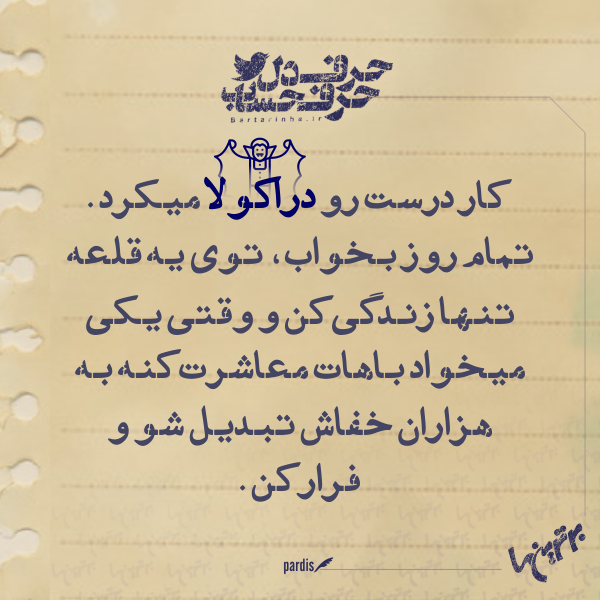 حرف دل
حرف حساب
Bartarinha.ir
کار درست رو دراکولا میکرد.
تمام روز بخواب، توی یه قلعه
تنها زندگی کن و وقتی یکی
میخواد باهات معاشرت کنه به
هزاران خفاش تبدیل شو و
فرار کن.
pardis
برترین‌ها